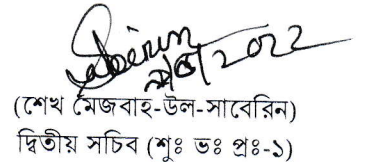 (শেখ মৈজবাহ-উল-সাবেরিন)
দ্বিতীয় সচিব (শুঃ ভঃ প্রঃ-১)